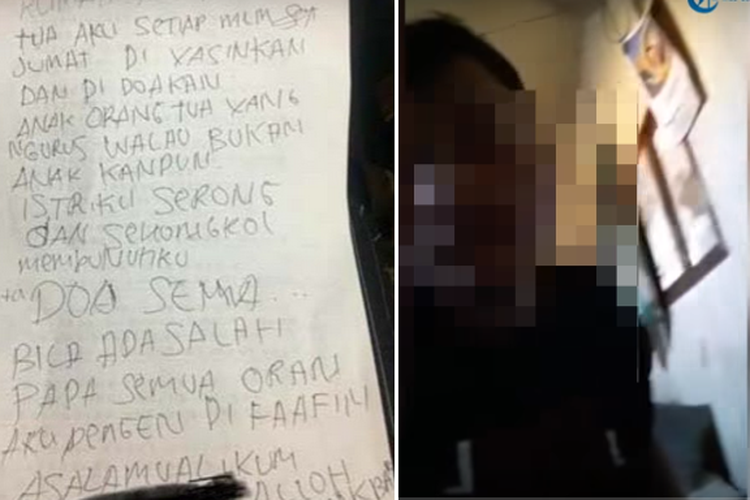 TUA AKU SETIAP MLM
JUMAT DI YASINKAN
DAN DI DOAKAN
ANAK ORANG TUA YANG
NGURUS WALAU BUKAN
ANAK KANPUN
ISTRIKU SERONG
DAN SEKONGKOL
MEMBUNUHKU
DOA SEMUA...
BILA ADA SALAH
PAPA SEMUA ORAN
AKU PENGEN DI FAAFIN
ASALAMUALIKUM